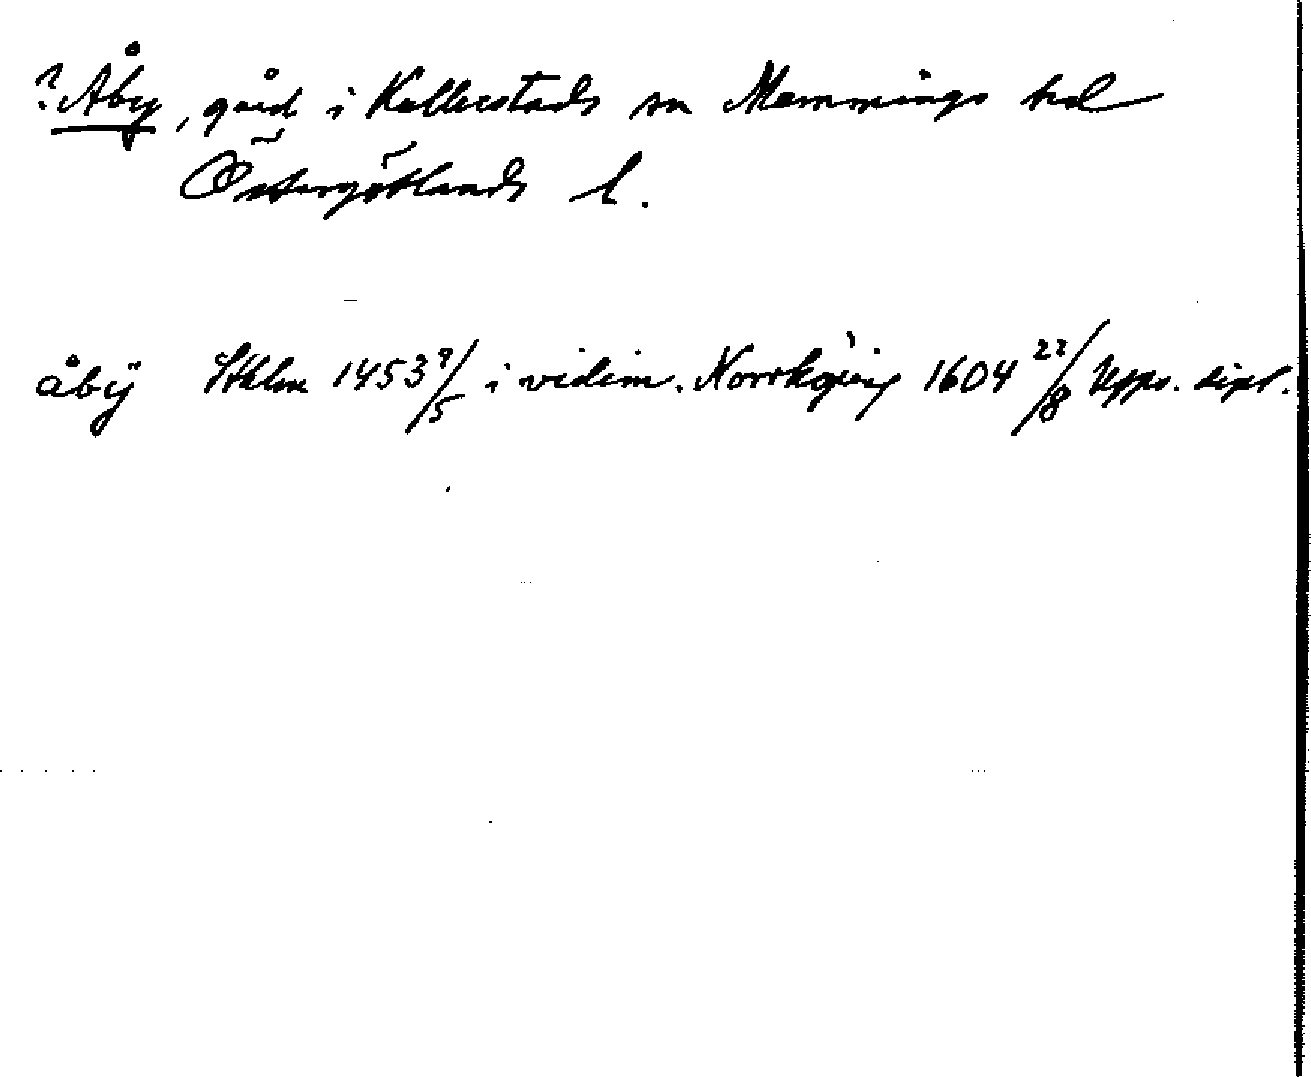 ? Åby, gård i Kullerstads sn Memmings hd
Östergötlands l.
åbÿ Sthlm 1453 9/5 i vidim. Norrköping 1604 22/8 Upps. dipl.